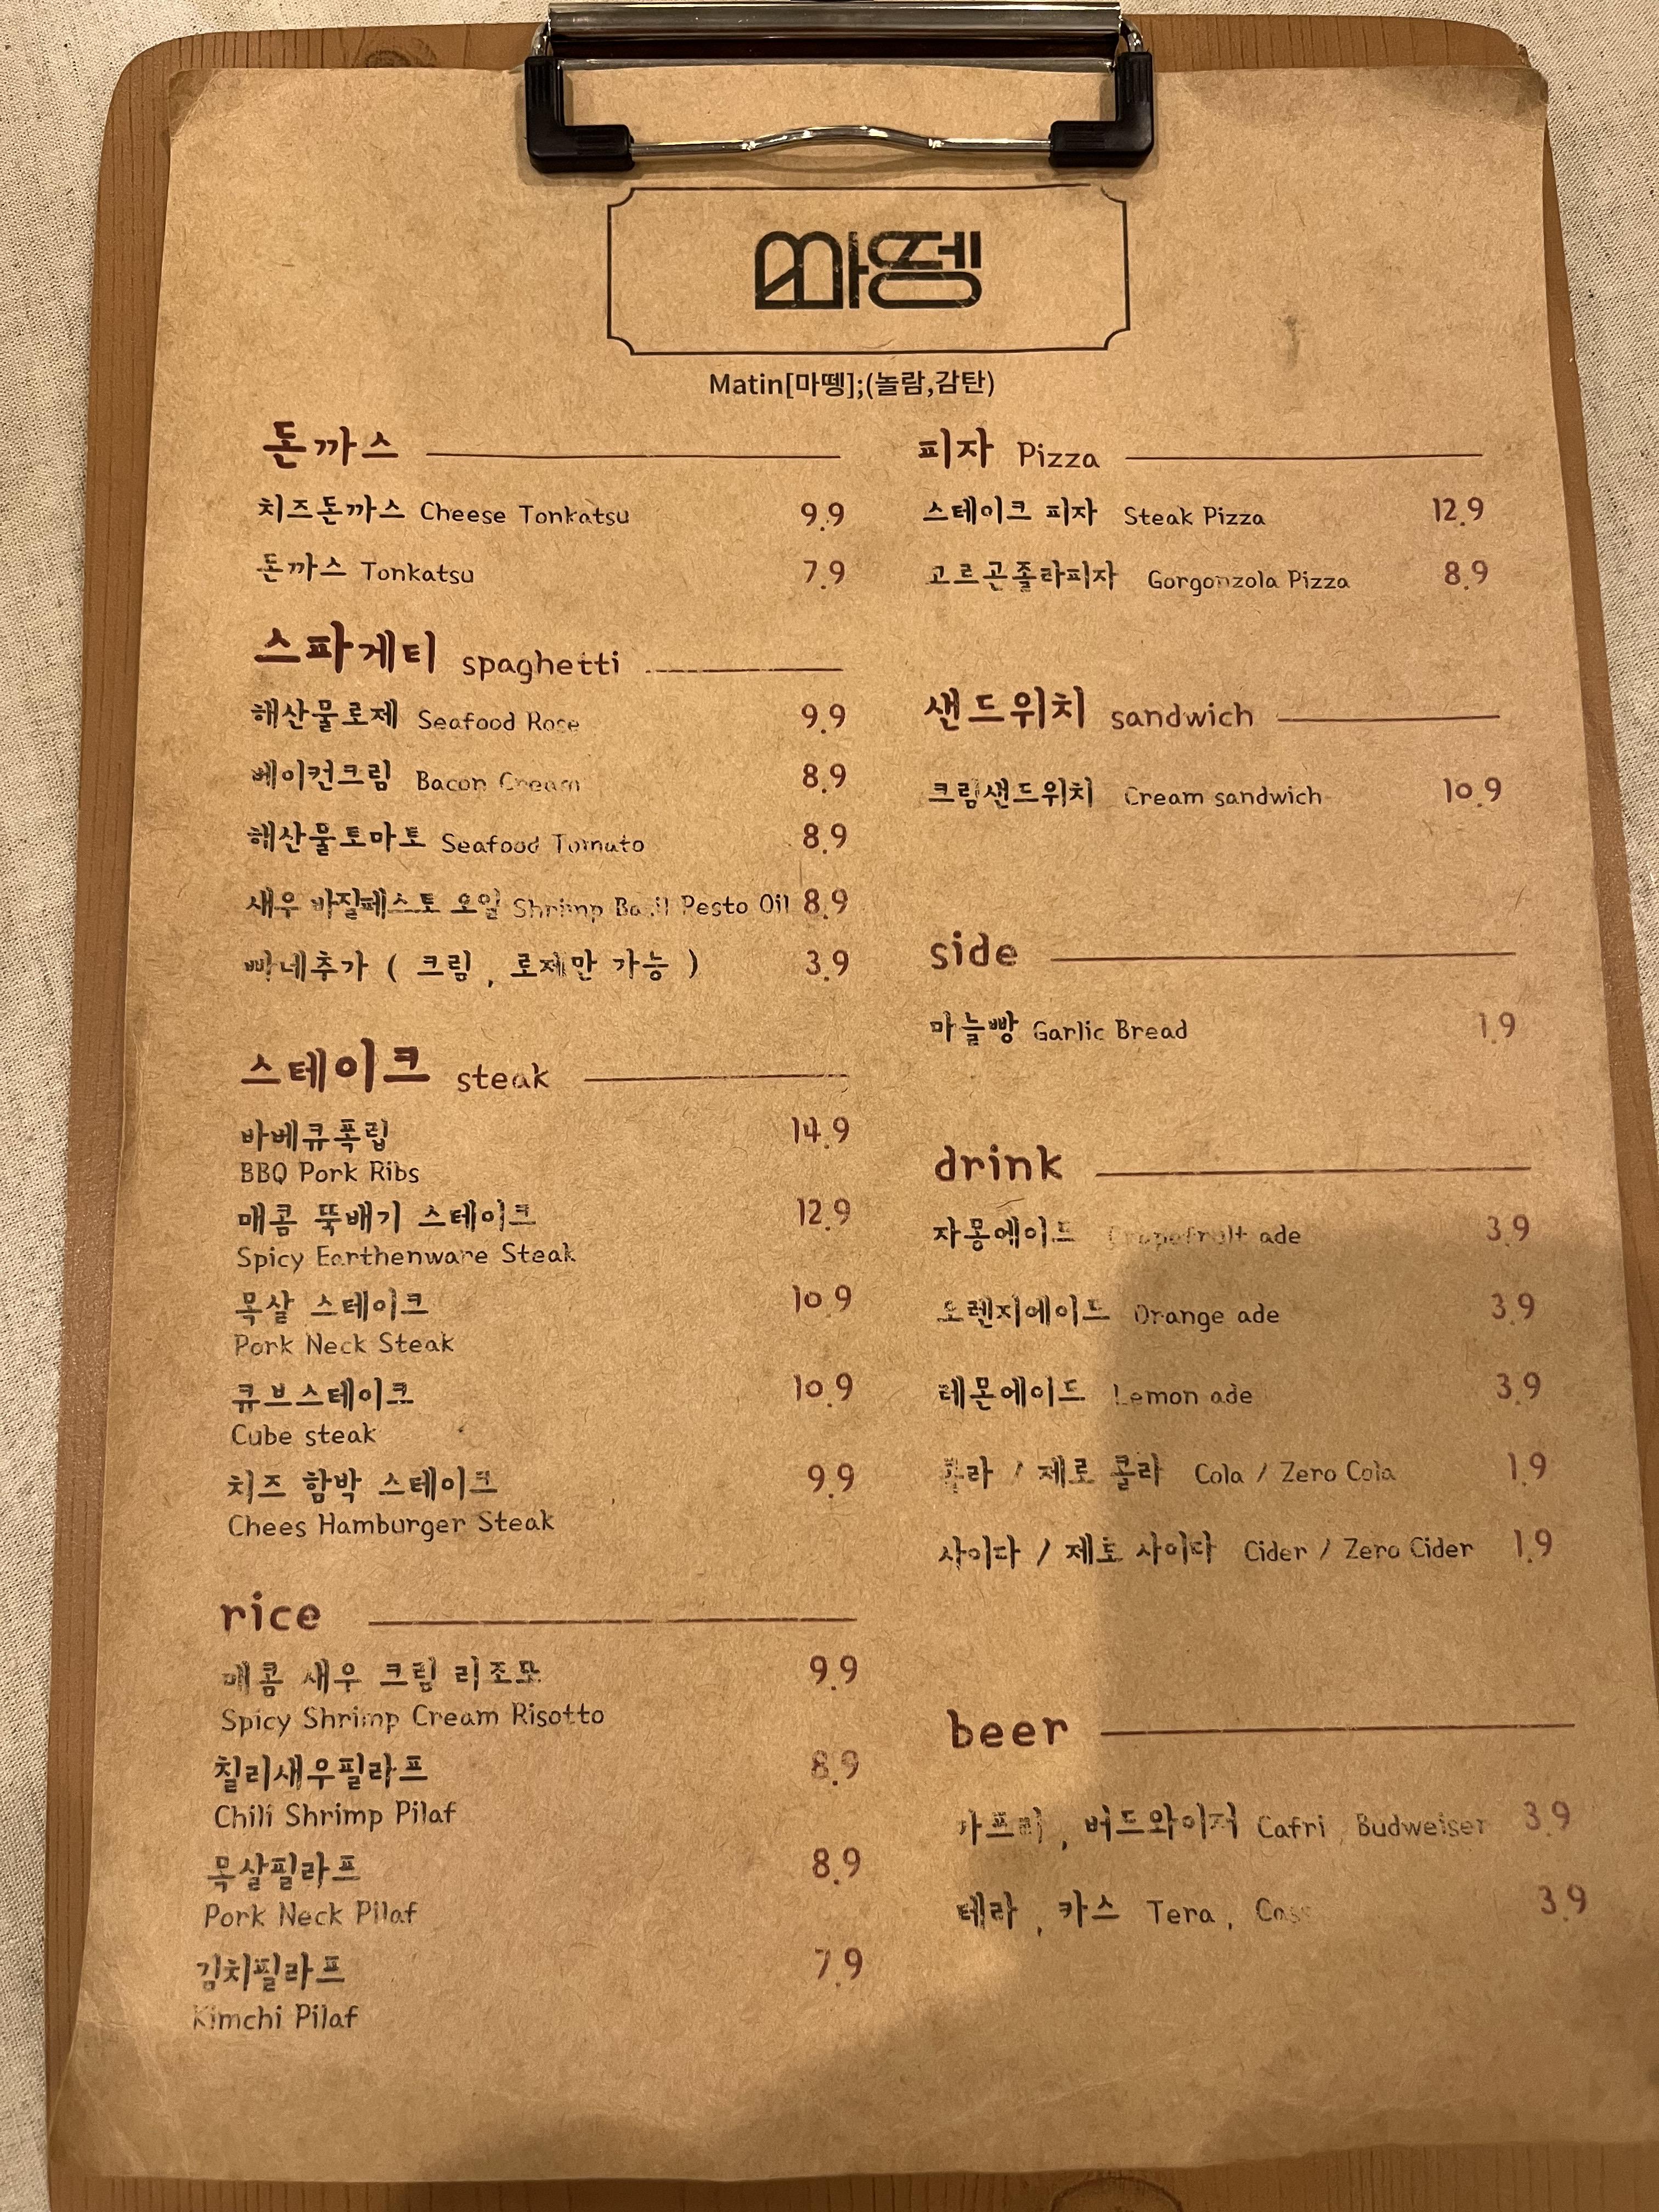 마뗑
Matin[마뗑];(놀람,감탄)
돈까스
치즈돈까스 Cheese Tonkatsu 9.9
돈까스 Tonkatsu 7.9
스파게티 spaghetti
해산물로제 Seafood Rose 9.9
베이컨크림 Bacon Cream 8.9
해산물토마토 Seafood Tomato 8.9
새우 바질페스토 오일 Shrimp Basil Pesto Oil 8.9
빠네추가 ( 크림 , 로제만 가능 ) 3.9
스테이크 steak
바베큐폭립 14.9
BBQ Pork Ribs
매콤 뚝배기 스테이크 12.9
Spicy Earthenware Steak
목살 스테이크 10.9
Pork Neck Steak
큐브스테이크 10.9
Cube steak
치즈 함박 스테이크 9.9
Chees Hamburger Steak
rice
매콤 새우 크림 리조또 9.9
Spicy Shrimp Cream Risotto
칠리새우필라프 8.9
Chili Shrimp Pilaf
목살필라프 8.9
Pork Neck Pilaf
김치필라프 7.9
Kimchi Pilaf
피자 Pizza
스테이크 피자 Steak Pizza 12.9
고르곤졸라피자 Gorgonzola Pizza 8.9
샌드위치 sandwich
크림샌드위치 Cream sandwich 10.9
side
마늘빵 Garlic Bread 1.9
drink
자몽에이드 Grapefruit ade 3.9
오렌지에이드 Orange ade 3.9
레몬에이드 Lemon ade 3.9
콜라 / 제로 콜라 Cola / Zero Cola 1.9
사이다 / 제로 사이다 Cider / Zero Cider 1.9
beer
카프리 , 버드와이저 Cafri , Budweiser 3.9
테라 , 카스 Tera , Cass 3.9